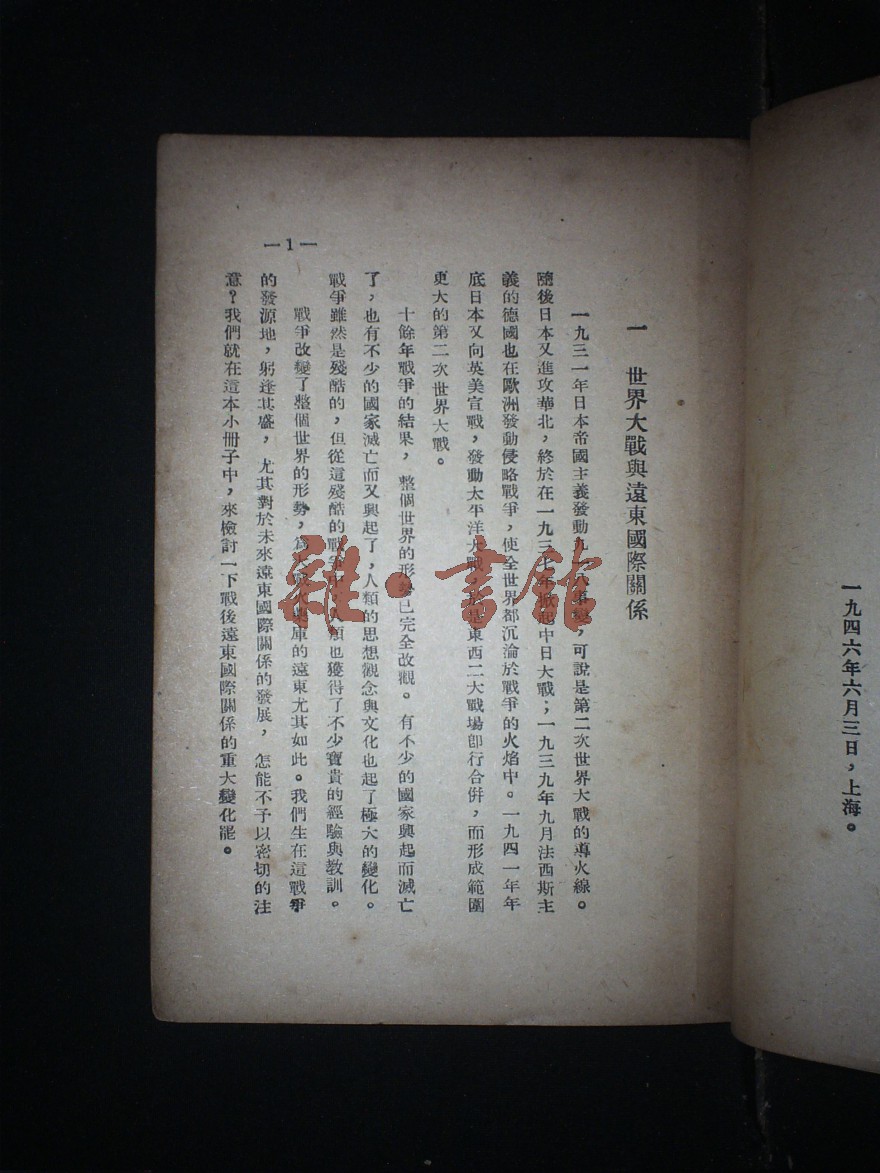 一九四六年六月三日，上海。
一　世界大戰與遠東國際關係
一九三一年日本帝國主義發動九一八事變，可說是第二次世界大戰的導火線。
隨後日本又進攻華北，終於在一九三七年掀起中日大戰；一九三九年九月法西斯主
義的德國也在歐洲發動侵略戰爭，使全世界都沉淪於戰爭的火焰中。一九四一年年
底日本又向英美宣戰，發動太平洋大戰，東西二大戰場卽行合併，而形成範圍
更大的第二次世界大戰。
十餘年戰爭的結果，整個世界的形勢已完全改觀。有不少的國家興起而滅亡
了，也有不少的國家滅亡而又興起了，人類的思想觀念與文化也起了極大的變化。
戰爭雖然是殘酷的，但從這殘酷的戰爭中，人類也獲得了不少寶貴的經驗與教訓。
戰爭改變了整個世界的形勢，為大戰火藥庫的遠東尤其如此。我們生在這戰爭
的發源地，躬逢其盛，尤其對於未來遠東國際關係的發展，怎能不予以密切的注
意？我們就在這本小冊子中，來檢討一下戰後遠東國際關係的重大變化罷。
—1—
雜·書館